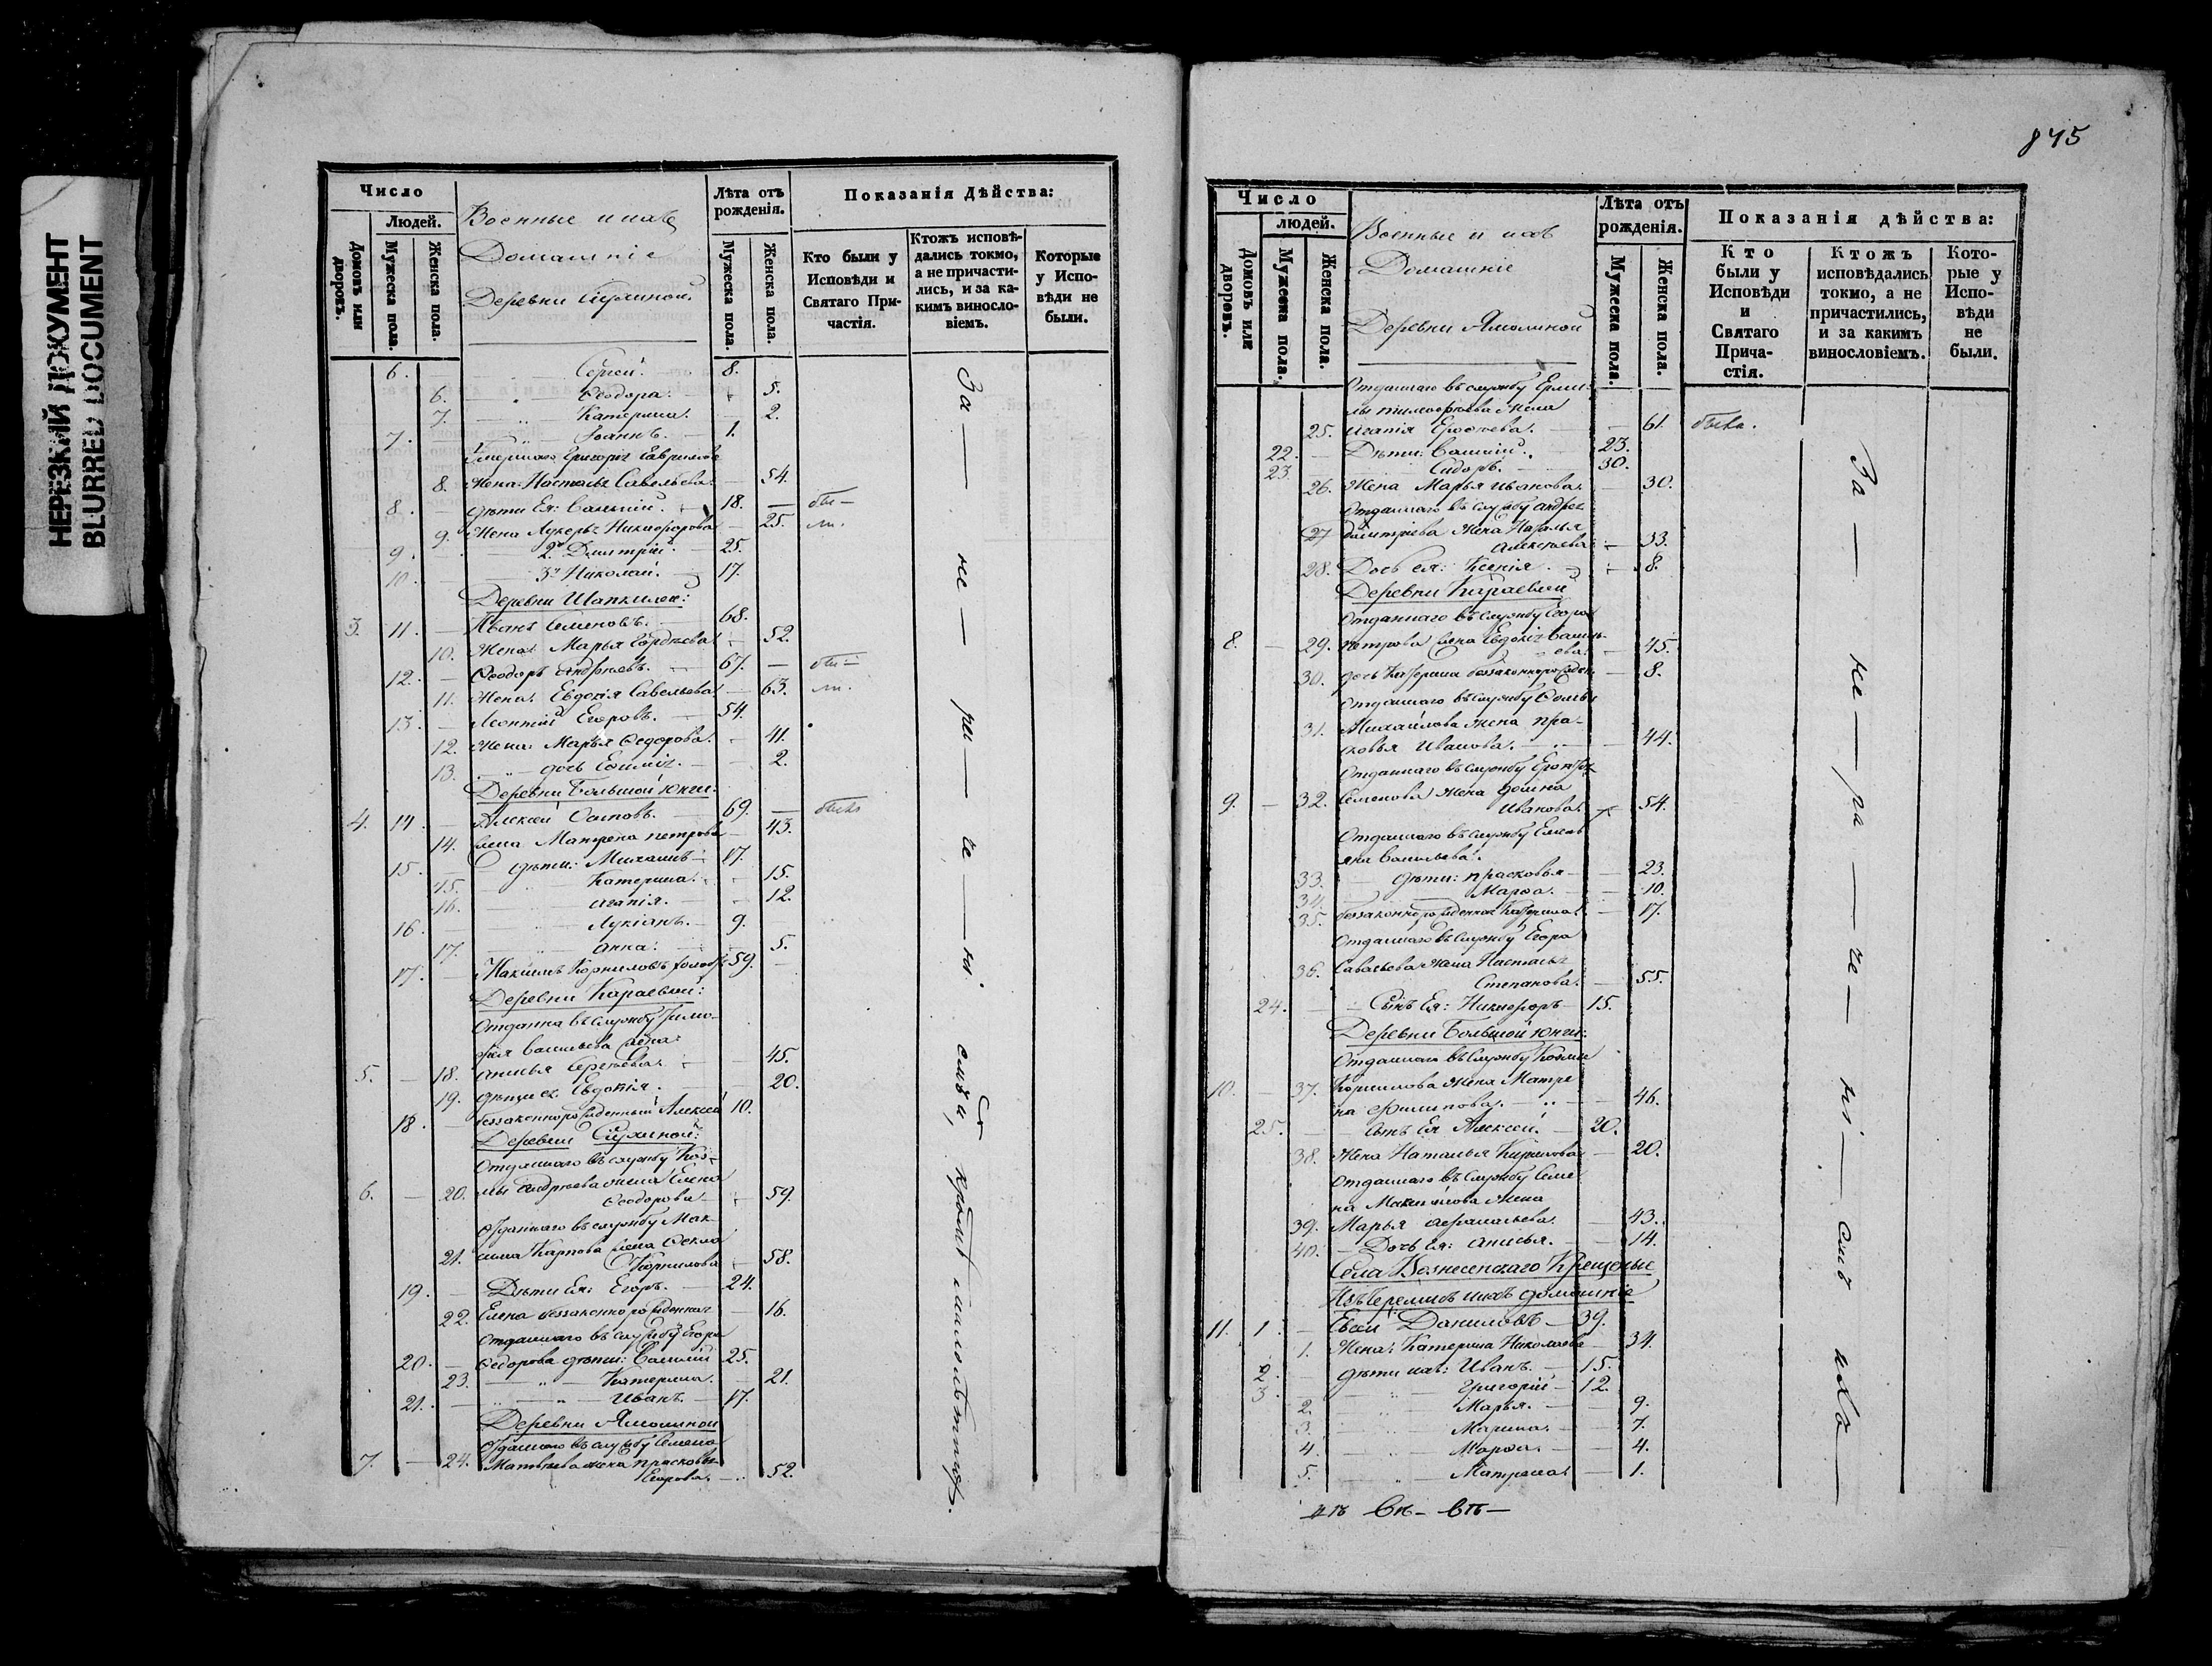 НЕРЕЗКИЙ ДОКУМЕНТ
BLURRED DOCUMENT
Число
Людей.
Домовъ или дворовъ.
Мужеска пола.
Женска пола.
Военные и ихъ
Домашніе
Деревни
Лѣта отъ рожденія.
Мужеска пола.
Женска пола.
Показанія Дѣйства:
Кто были у Исповѣди и Святаго Причастія.
Ктожъ исповѣдались токмо, а не причастились, и за какимъ винословіемъ.
Которые у Исповѣди не были.
6. Сергей. 8.
6. Ѳеодора. 5.
7. Катерина. 2.
7. Іоаннъ. 1.
Умершаго Григорія Гаврилова
8. Жена Настасья Савельева 54.
8. дѣти Ея: Василий. 18.
9. Жена Лукерья Никифорова 25.
9. 2й Дмитрій. 25.
10. 3й Николай. 17.
Деревни Шапкилей:
3. 11. Иванъ Семеновъ. 68.
10. Жена Марья Гордѣева 52.
12. Ѳеодоръ Андреевъ. 67.
11. Жена Евдокія Савельева 63.
13. Леонтий Егоровъ. 54.
12. Жена: Марья Ѳедорова. 41.
13. дочь 2.
Деревни Большой Юнги:
4. 14. Алексѣй Осиповъ. 69. былъ
14. жена Матрена петрова 43.
15. дѣти: Михаилъ 17.
15. Катерина. 15.
16. Агапія. 12.
16. Лукіанъ. 9.
17. Анна. 5.
17. Іакимъ Корниловъ 59.
Деревни Караевой:
Отданна въ службу Тимо-
фея Васильева жена
5. 18. Анисья Сергѣева. 45.
19. Евдокія. 20.
18. беззаконнорожденный Алексѣй 10.
Деревни
Отданнаго въ службу Коз-
6. 20. мы Андреева жена Елена
Ѳеодорова 59.
Отданнаго въ службу Мак-
21. сима Карпова жена Ѳекла
Корнилова 58.
19. Дѣти Ея: Егоръ. 24.
22. Елена беззаконнорожденная 16.
Отданнаго въ службу Егора
20. Ѳедорова дѣти: Василий 25.
23. Катерина. 21.
21. Иванъ. 17.
Деревни Ямолиной
Отданнаго въ службу Семена
7. 24. Матвѣева жена прасковья
Егорова. 52.
За — не — ра — че — ні. емъ, кромѣ малолѣтст.
845
Число
людей.
Домовъ или дворовъ.
Мужеска пола.
Женска пола.
Военные и ихъ
Домашніе
Деревни Ямолиной
Лѣта отъ рожденія.
Мужеска пола.
Женска пола.
Показанія дѣйства:
Кто были у Исповѣди и Святаго Причастія.
Ктожъ исповѣдались токмо, а не причастились, и за какимъ винословіемъ.
Которые у Исповѣди не были.
Отданнаго въ службу Ерми-
лы тимоѳеева жена
25. Агапія Ероѳеева. 61. была.
22. Дѣти: Василий. 23.
23. Сидоръ. 30.
26. Жена Марья Иванова. 30.
Отданнаго въ службу андрея
27 Дмитріева Жена Наталья
Алексѣева 33.
28. Дочь ея: Ксенія. 8.
Деревни Караевой
Отданнаго въ службу Егора
8. 29. петрова жена Евдокія Василь-
ева 45.
30. дочь Катерина беззаконнорожден. 8.
Отданнаго въ службу
31. Михайлова жена пра-
сковья Иванова. 44.
Отданнаго въ службу
9. 32. Семенова жена домна
Иванова. 54.
Отданнаго въ службу Емель-
яна Васильева.
33. дѣти: прасковья 23.
34. Марѳа. 10.
35. беззаконнорожденная Катерина. 17.
Отданнаго въ службу Егора
36. Савельева жена Настасья
Степанова. 55.
24. Сынъ Ея: Никифоръ 15.
Деревни Большой Юнги:
Отданнаго въ службу Козмы
10. 37. Корнилова жена Матре-
на Филипова. 46.
25. сынъ Ея Алексѣй. 20.
38. Жена Наталья Кирилова 20.
Отданнаго въ службу Семе-
на Максимова жена
39. Марья Аѳанасьева. 43.
40. Дочь Ея: Анисья. 14.
Села Вознесенскаго Крещеные
Изъ Черемисъ ихъ домашніе
11. 1. Евсей Даниловъ 39.
1. Жена: Катерина Николаева 34.
2. дѣти ихъ: Иванъ. 15.
3. Григорій 12.
2. Марья. 9.
3. Марина. 7.
4. Марѳа. 4.
5. Матрена. 1.
За — не — ра — че — ні — емъ ихъ —